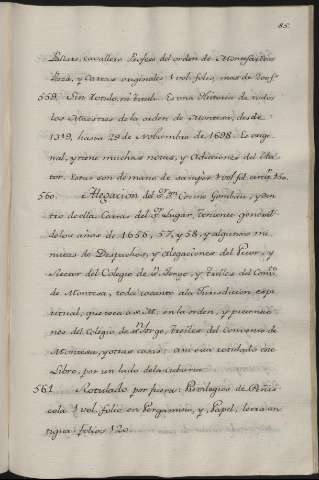 85.
Cavallero Profeso del orden de Montesa
y Cartas originales 1 vol. folio, mas de 200 fs.
559. Sin Rotulo, ni titulo. Es una Historia de todos
los Maestres de la orden de Montesa, desde
1319, hasta 29 de Nobiembre de 1698. Es origi-
nal, y tiene muchas notas, y Adiciones del Au-
tor. Estas son de mano de Samper. 1 vol. fol.
560. Allegacion del Sr. Dn. Gombau, y den-
tro de ella Cartas del Sr. Lugar, teniente general
de los años de 1656, 57, y 58, y algunas mi-
nutas de Despachos, y Alegaciones del Prior, y
Rector del Colegio de Sn. Jorge, y Frailes del Convto.
de Montesa, toda tocante a la Jurisdicion espi-
ritual, que toca a S.M. en la orden, y puertas
nos del Colegio de Sn. Jorge, Freiles del Convento de
Montesa, y otras casas: asi esta rotulado este
Libro, por un lado de la cubierta.
561. Rotulado por fuera: Privilegios de Peñis-
cola 1 vol. folio en Pergamino, y Papel, letra an-
tigua: folios 120.